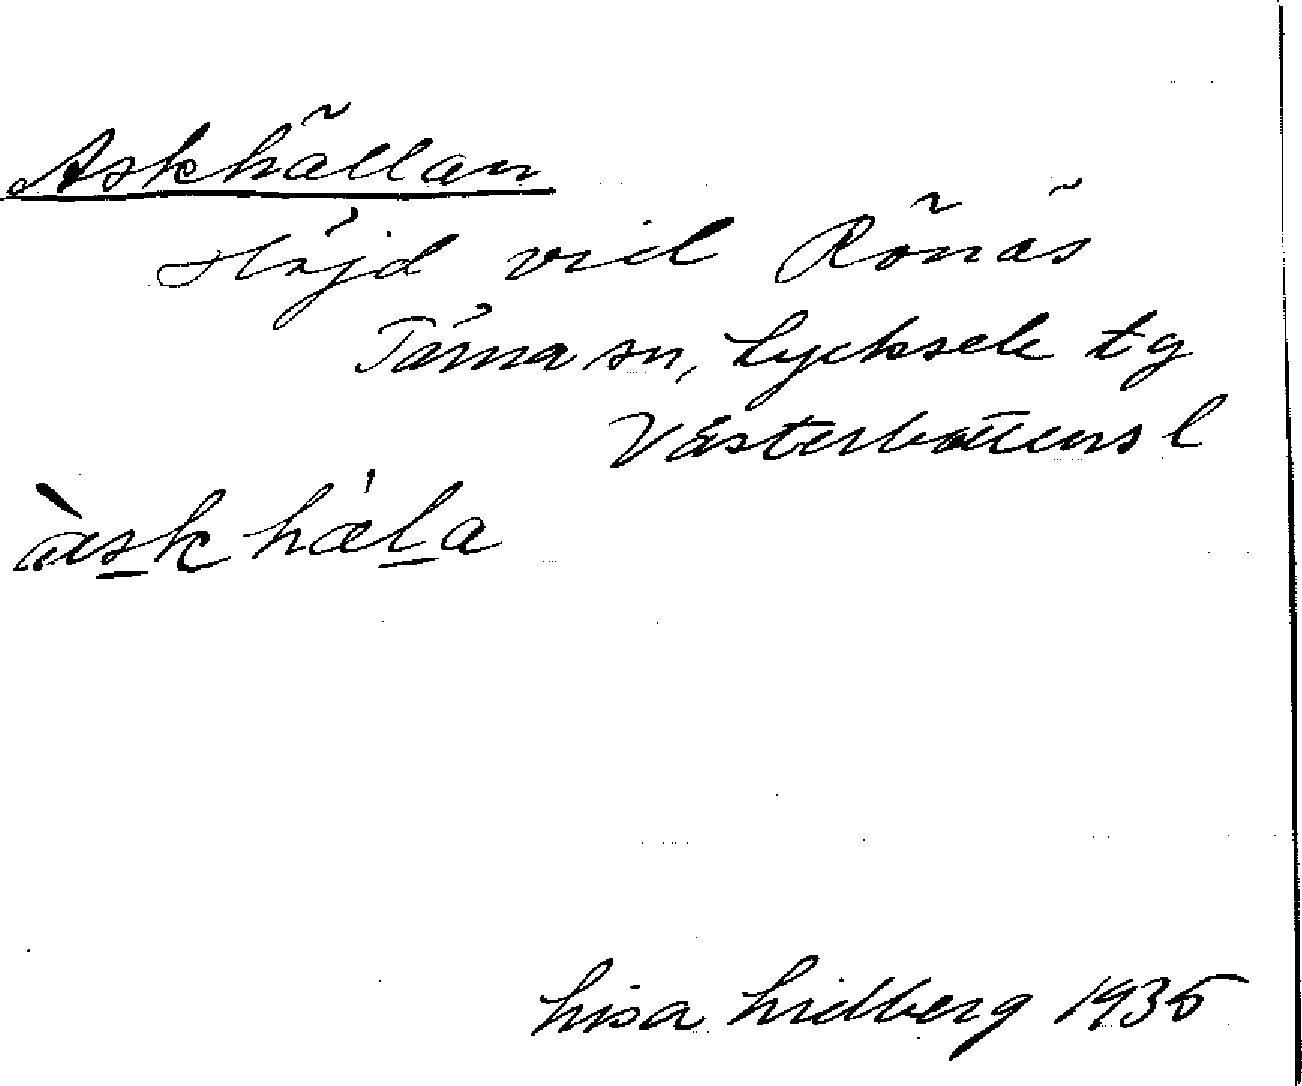 Askhällan
Höjd vid Rönäs
Tärna sn, Lycksele tg
Västerbottens l
àsk hæ̀la
Lisa Lidberg 1935